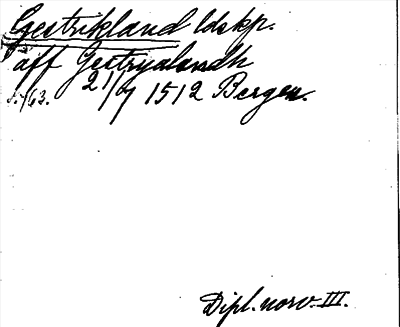 Gestrikland ldskp.
äff Gestryalandh
S. 763. 21/7 1512 Bergen.
Dipl. norv. III.